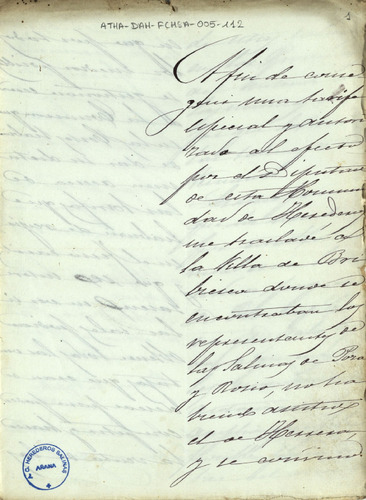 ATHA-DAH-FCHSA-005-112
1
A fin de conse
guir una tarifa
especial y autori
zado al efecto
por el Diputado
de esta Comuni
dad de Herederos
me trasladé a
la Villa de Bri
biesca donde se
encontraban los
representantes de
las Salinas de Poza
y Rosio, no ha
biendo asistido
el de Herrera,
y se convino
C. HEREDEROS SALINAS
ARANA